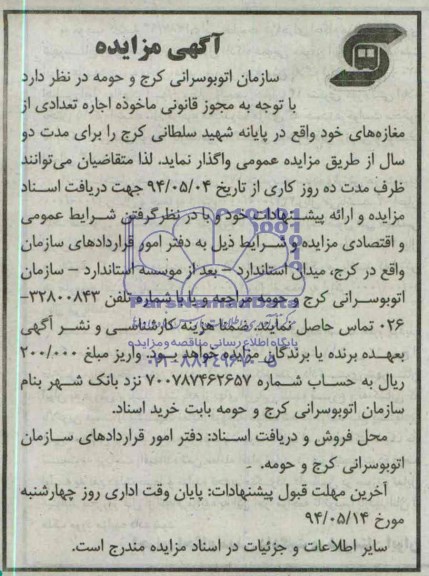 آگهی مزایده
سازمان اتوبوسرانی کرج و حومه در نظر دارد
با توجه به مجوز قانونی ماخوذه اجاره تعدادی از
مغازه‌های خود واقع در پایانه شهید سلطانی کرج را برای مدت دو
سال از طریق مزایده عمومی واگذار نماید. لذا متقاضیان می‌توانند
ظرف مدت ده روز کاری از تاریخ ۹۴/۰۵/۰۴ جهت دریافت اسناد
مزایده و ارائه پیشنهادات خود و با در نظر گرفتن شرایط عمومی
و اقتصادی مزایده و شرایط ذیل به دفتر امور قراردادهای سازمان
واقع در کرج، میدان استاندارد – بعد از موسسه استاندارد – سازمان
اتوبوسرانی کرج و حومه مراجعه و یا با شماره تلفن ۳۲۸۰۰۸۴۳-
۰۲۶ تماس حاصل نمایند. ضمنا هزینه کارشناسی و نشر آگهی
بعهده برنده یا برندگان مزایده خواهد بود. واریز مبلغ ۲۰۰/۰۰۰
ریال به حساب شماره ۷۰۰۷۸۷۴۶۲۶۵۷ نزد بانک شهر بنام
سازمان اتوبوسرانی کرج و حومه بابت خرید اسناد.
محل فروش و دریافت اسناد: دفتر امور قراردادهای سازمان
اتوبوسرانی کرج و حومه.
آخرین مهلت قبول پیشنهادات: پایان وقت اداری روز چهارشنبه
مورخ ۹۴/۰۵/۱۴
سایر اطلاعات و جزئیات در اسناد مزایده مندرج است.
ParsNamadData
پایگاه اطلاع رسانی مناقصه و مزایده